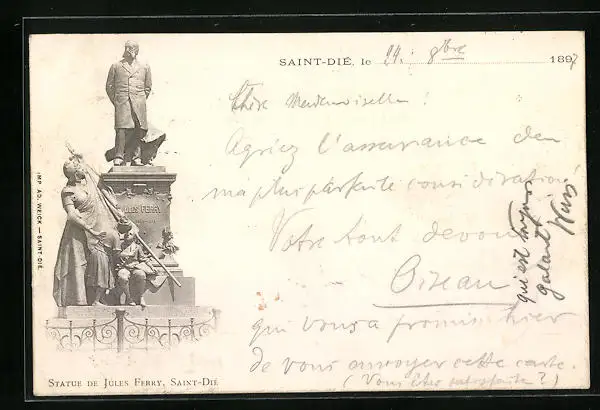 SAINT-DIÉ, le 24. 8bre 1897
Chère Mademoiselle!
Agréez l'assurance de
ma plus parfaite considération
Votre tout dévoué
Oiseau
qui vous a promis hier
de vous envoyer cette carte.
(Vous êtes satisfaite?)
qui est toujours
galant
IMP. AD. WEICK — SAINT-DIÉ.
JULES FERRY
STATUE DE JULES FERRY, SAINT-DIÉ